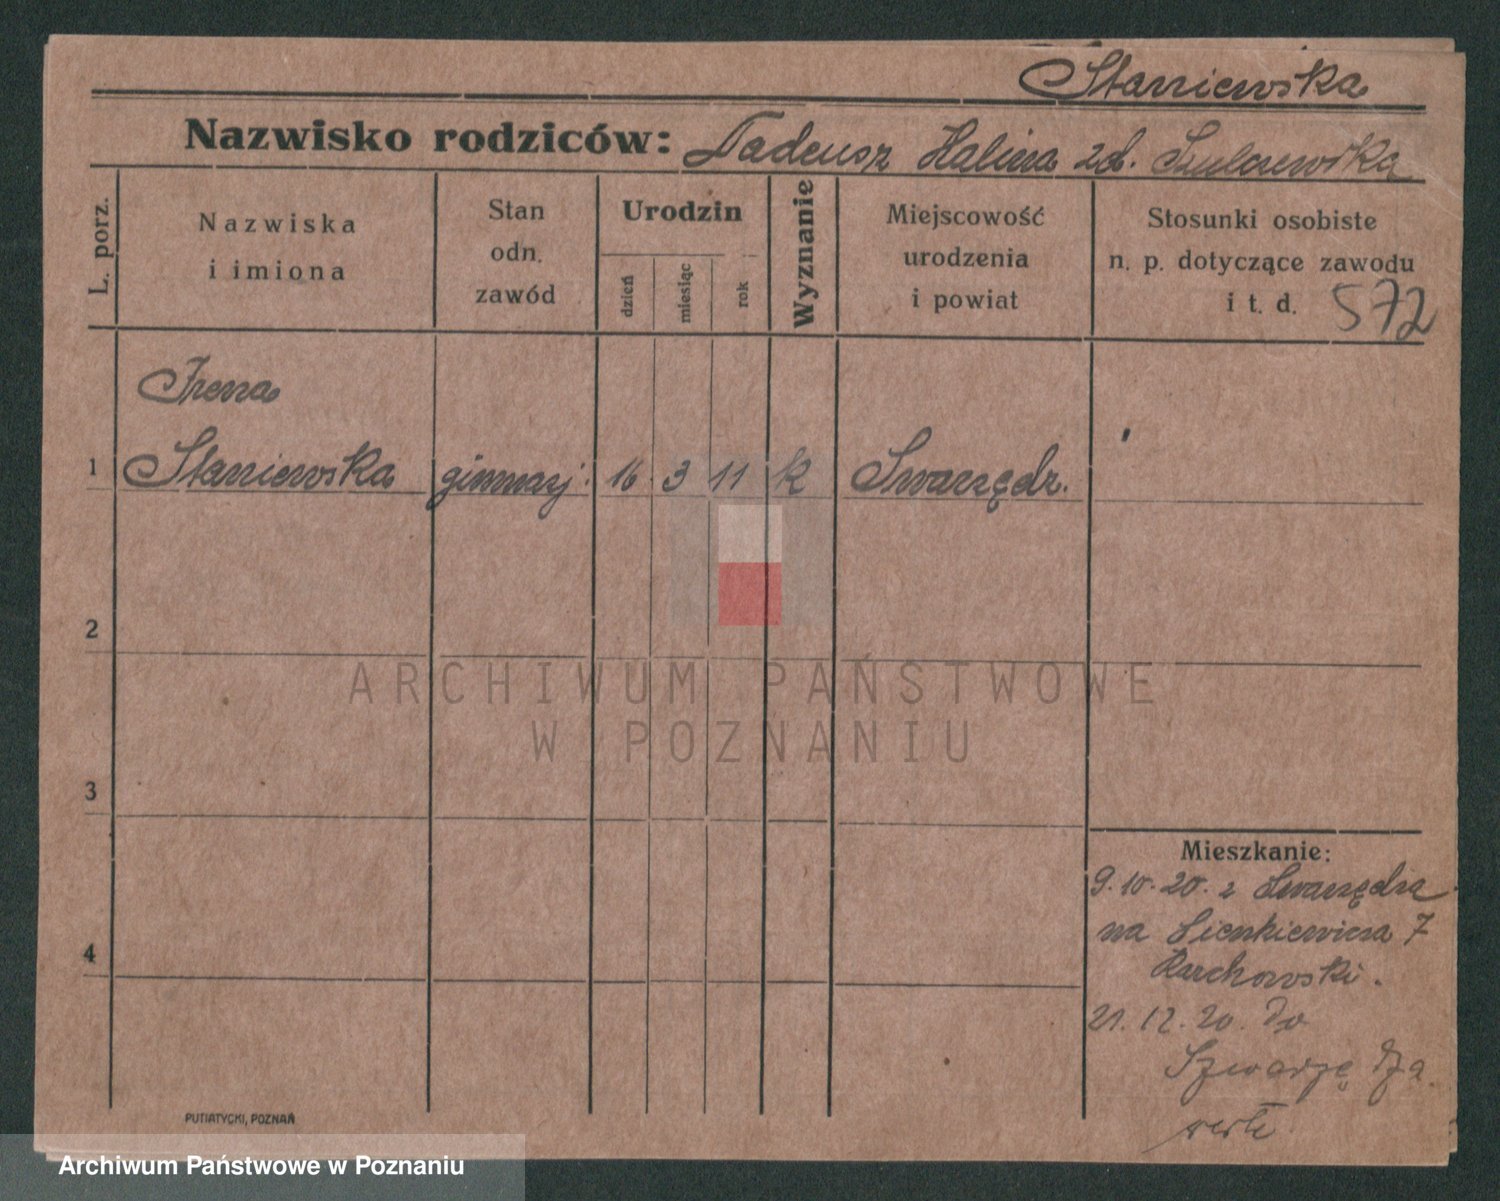 Staniewska
Nazwisko rodziców: Tadeusz Halina zd. Szulczewska
L. porz.
Nazwiska
i imiona
Stan
odn.
zawód
Urodzin
dzień
miesiąc
rok
Wyznanie
Miejscowość
urodzenia
i powiat
Stosunki osobiste
n. p. dotyczące zawodu
i t. d. 572
Irena
1 Staniewska gimnazj. 16 3 11 k Swarzędz.
2
3
4
ARCHIWUM PAŃSTWOWE
W POZNANIU
Mieszkanie:
9.10.20. z Swarzędza
na Sienkiewicza 7
21.12.20. do
Szwarzędza
PUTIATYCKI, POZNAŃ
Archiwum Państwowe w Poznaniu